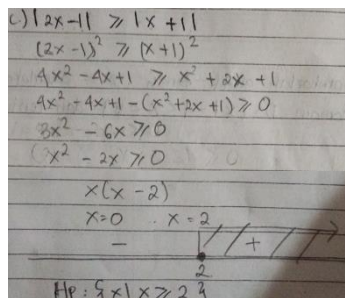 c) |2x-1| ≥ |x+1|
(2x-1)² ≥ (x+1)²
4x² -4x+1 ≥ x² + 2x +1
4x² -4x+1-(x²+2x+1) ≥ 0
3x² - 6x ≥ 0
x² - 2x ≥ 0
x(x-2)
x=0 x=2
- +
2
HP: {x|x ≥ 2}